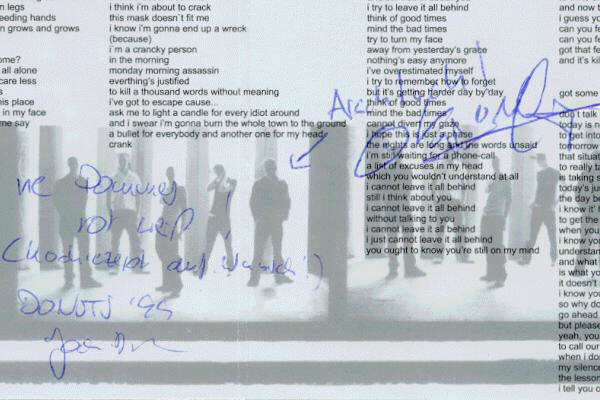 n legs
eeding hands
n grows and grows
me?
all alone
care less
s
his place
in my face
me say
i think i'm about to crack
this mask doesn't fit me
i know i'm gonna end up a wreck
(because)
i'm a crancky person
in the morning
monday morning assassin
everthing's justified
to kill a thousand words without meaning
i've got to escape cause...
ask me to light a candle for every idiot around
and i swear i'm gonna burn the whole town to the ground
a bullet for everybody and another one for my head
crank
i try to leave it all behind
think of good times
mind the bad times
try to turn my face
away from yesterday's grace
nothing's easy anymore
i've overestimated myself
i try to remember how to forget
but it's going harder day by day
think of good times
mind the bad times
cannot divert my gaze
i hope this is just a phase
the nights are long and the words unsaid
i'm still waiting for a phone-call
a list of excuses in my head
which you wouldn't understand at all
i cannot leave it all behind
still i think about you
i cannot leave it all behind
without talking to you
i cannot leave it all behind
i just cannot leave it all behind
you ought to know you're still on my mind
and now t
i guess yo
can you fe
can you fe
got that fe
and it's kil
got some
don't talk
today is n
to get into
tomorrow
that situat
to really ta
is taking s
today's jus
the day be
i know it'
to get the
when you
i know you
understan
and what
is what yo
it doesn't
i know you
so why do
go ahead
but please
yeah, you
to call our
when i do
my silence
the lesson
i tell you o
DONUTS '95